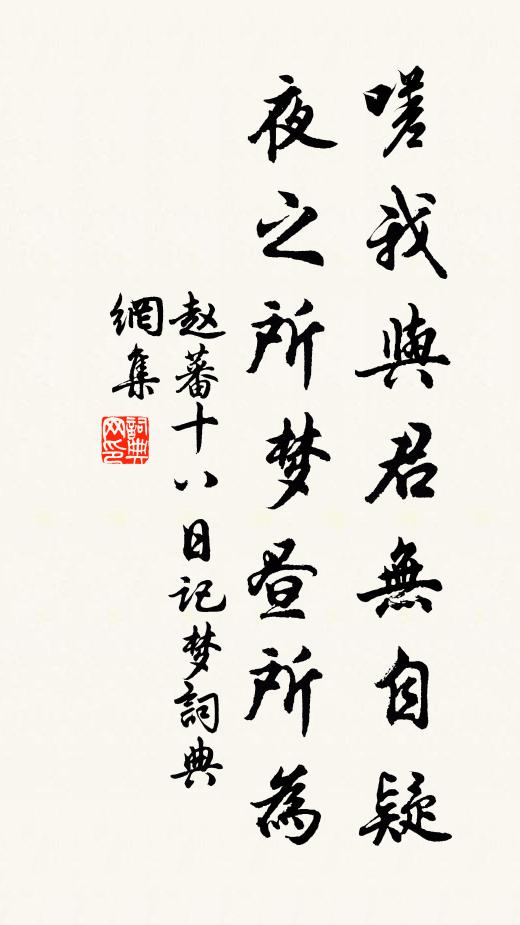 嗟我與君無自疑
夜之所梦昼所為
赵蕃十八日记梦詞典
網集
詞典
网印